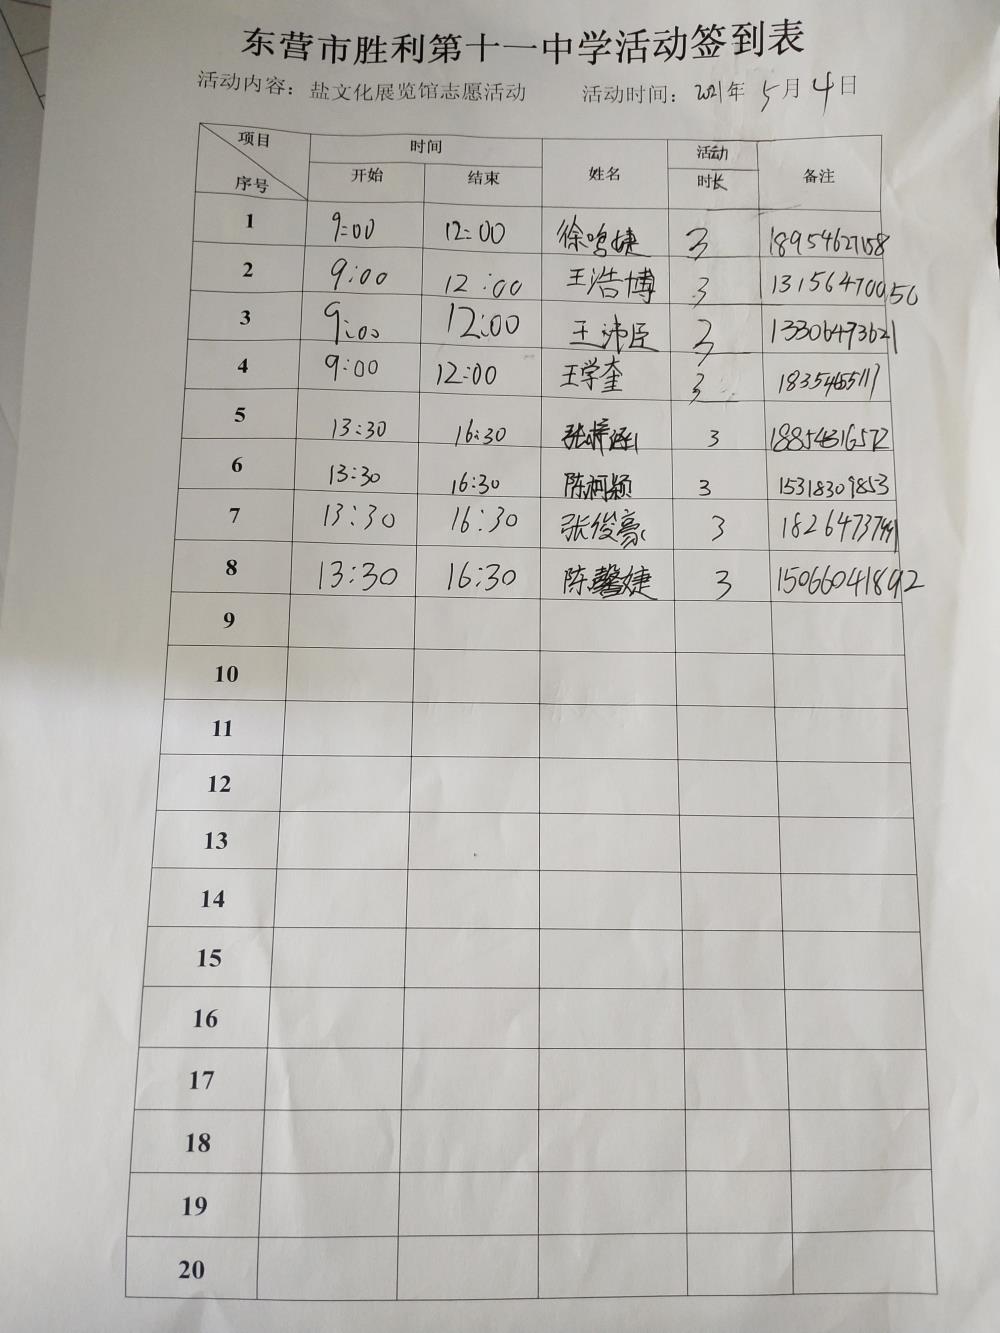 东营市胜利第十一中学活动签到表
活动内容：盐文化展览馆志愿活动 活动时间：2021年 5月 4日
项目 时间 姓名 活动 备注
序号 开始 结束 时长
1 9:00 12:00 徐鸣婕 3
2 9:00 12:00 王浩博 3 13156470056
3 9:00 12:00 王沛臣 3 13306493621
4 9:00 12:00 王学奎 3
5 13:30 16:30 张梓涵 3 18854316572
6 13:30 16:30 陈柯颖 3 15318309853
7 13:30 16:30 张俊豪 3
8 13:30 16:30 陈馨婕 3 15066041892
9
10
11
12
13
14
15
16
17
18
19
20